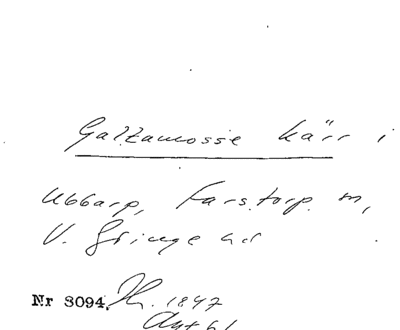 Galtamosse kärr i
Ubbarp, Farstorp m,
V. Göinge hd
Nr 3094. 1847